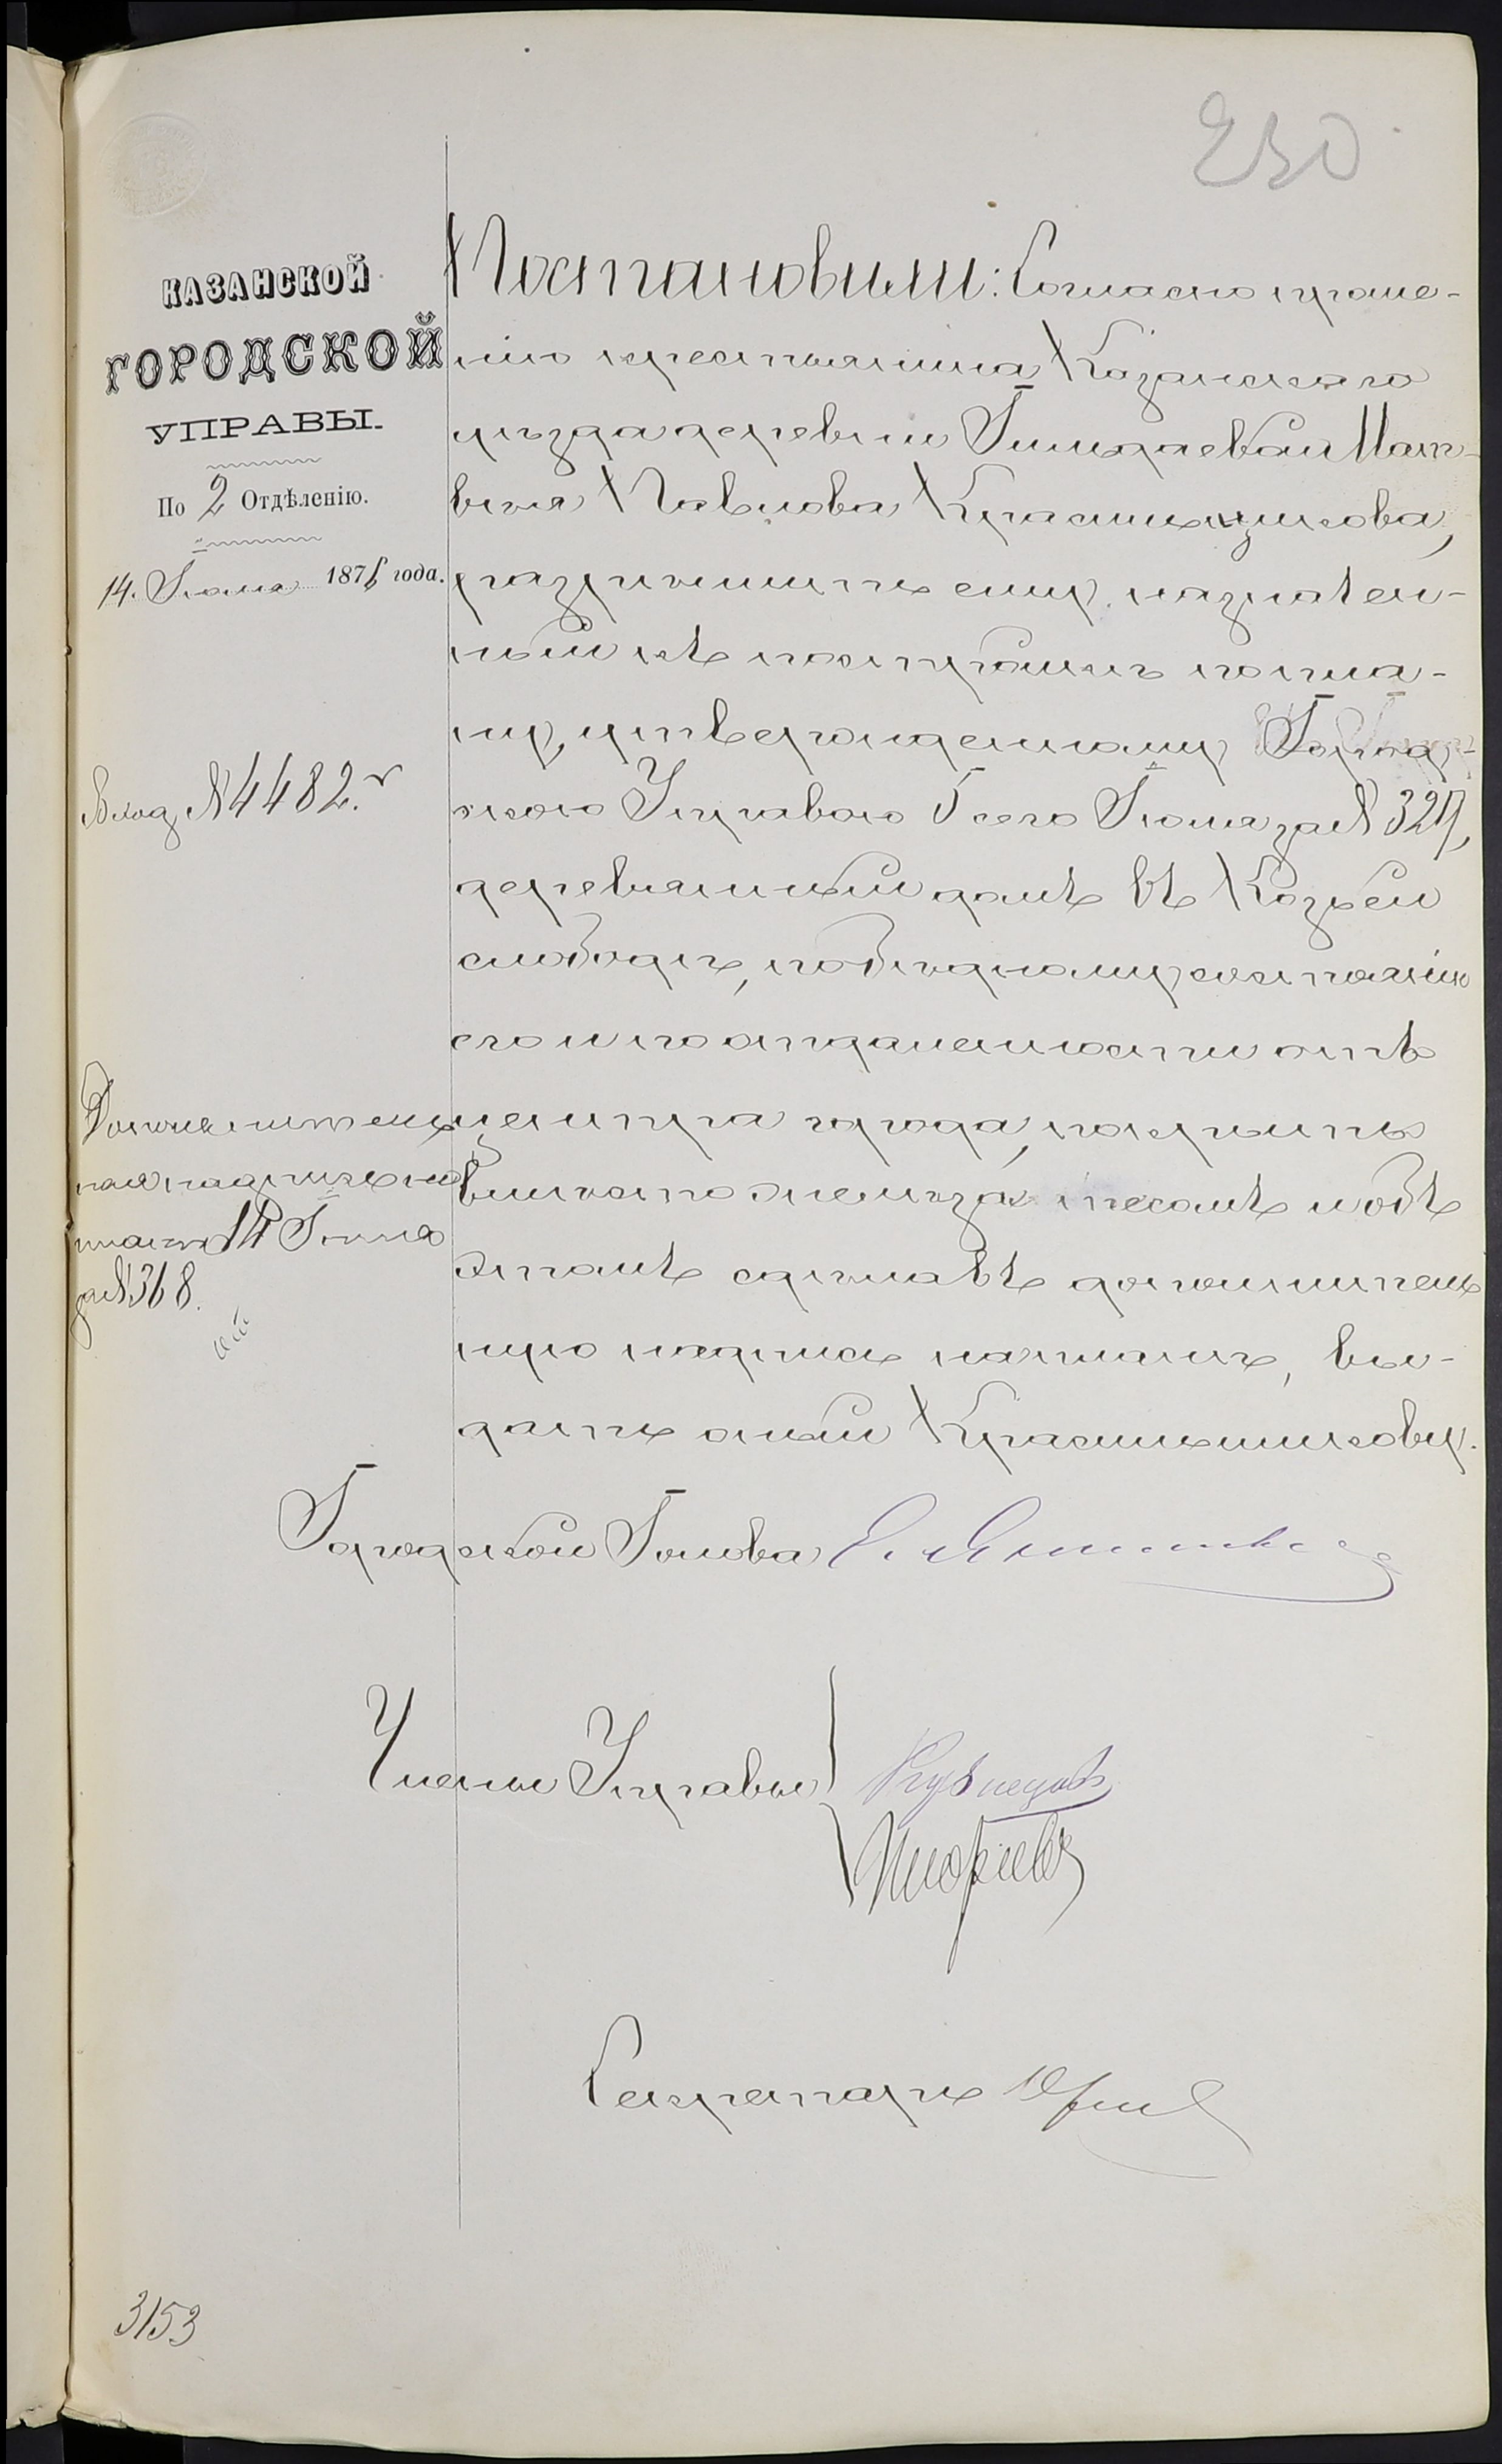 230
КАЗАНСКОЙ
ГОРОДСКОЙ
УПРАВЫ.
По 2 Отдѣленію.
14. Іюня 1878 года.
Вход. № 4482.
Дополнитель-
ная надпись на
планѣ 14 Іюня
за № 368.
Постановили: Согласно проше-
нію крестьянина Казанскаго
уѣзда деревни Гильдеевой Мат-
вѣя Павлова Красильщикова,
разрѣшить ему, назначен-
ный къ постройкѣ по пла-
ну, утвержденному Город-
скою Управою 5 сего Іюня за № 329,
деревянный домъ въ Козьей
слободѣ, по бѣдному состоянію
его и по отдаленности отъ
центра города, покрыть
вмѣсто желѣза тесомъ и объ
этомъ сдѣлавъ дополнитель
ную надпись на планѣ, вы-
дать оный Красильщикову.
Городской Голова
Члены Управы Кузнецовъ
Секретарь
3153